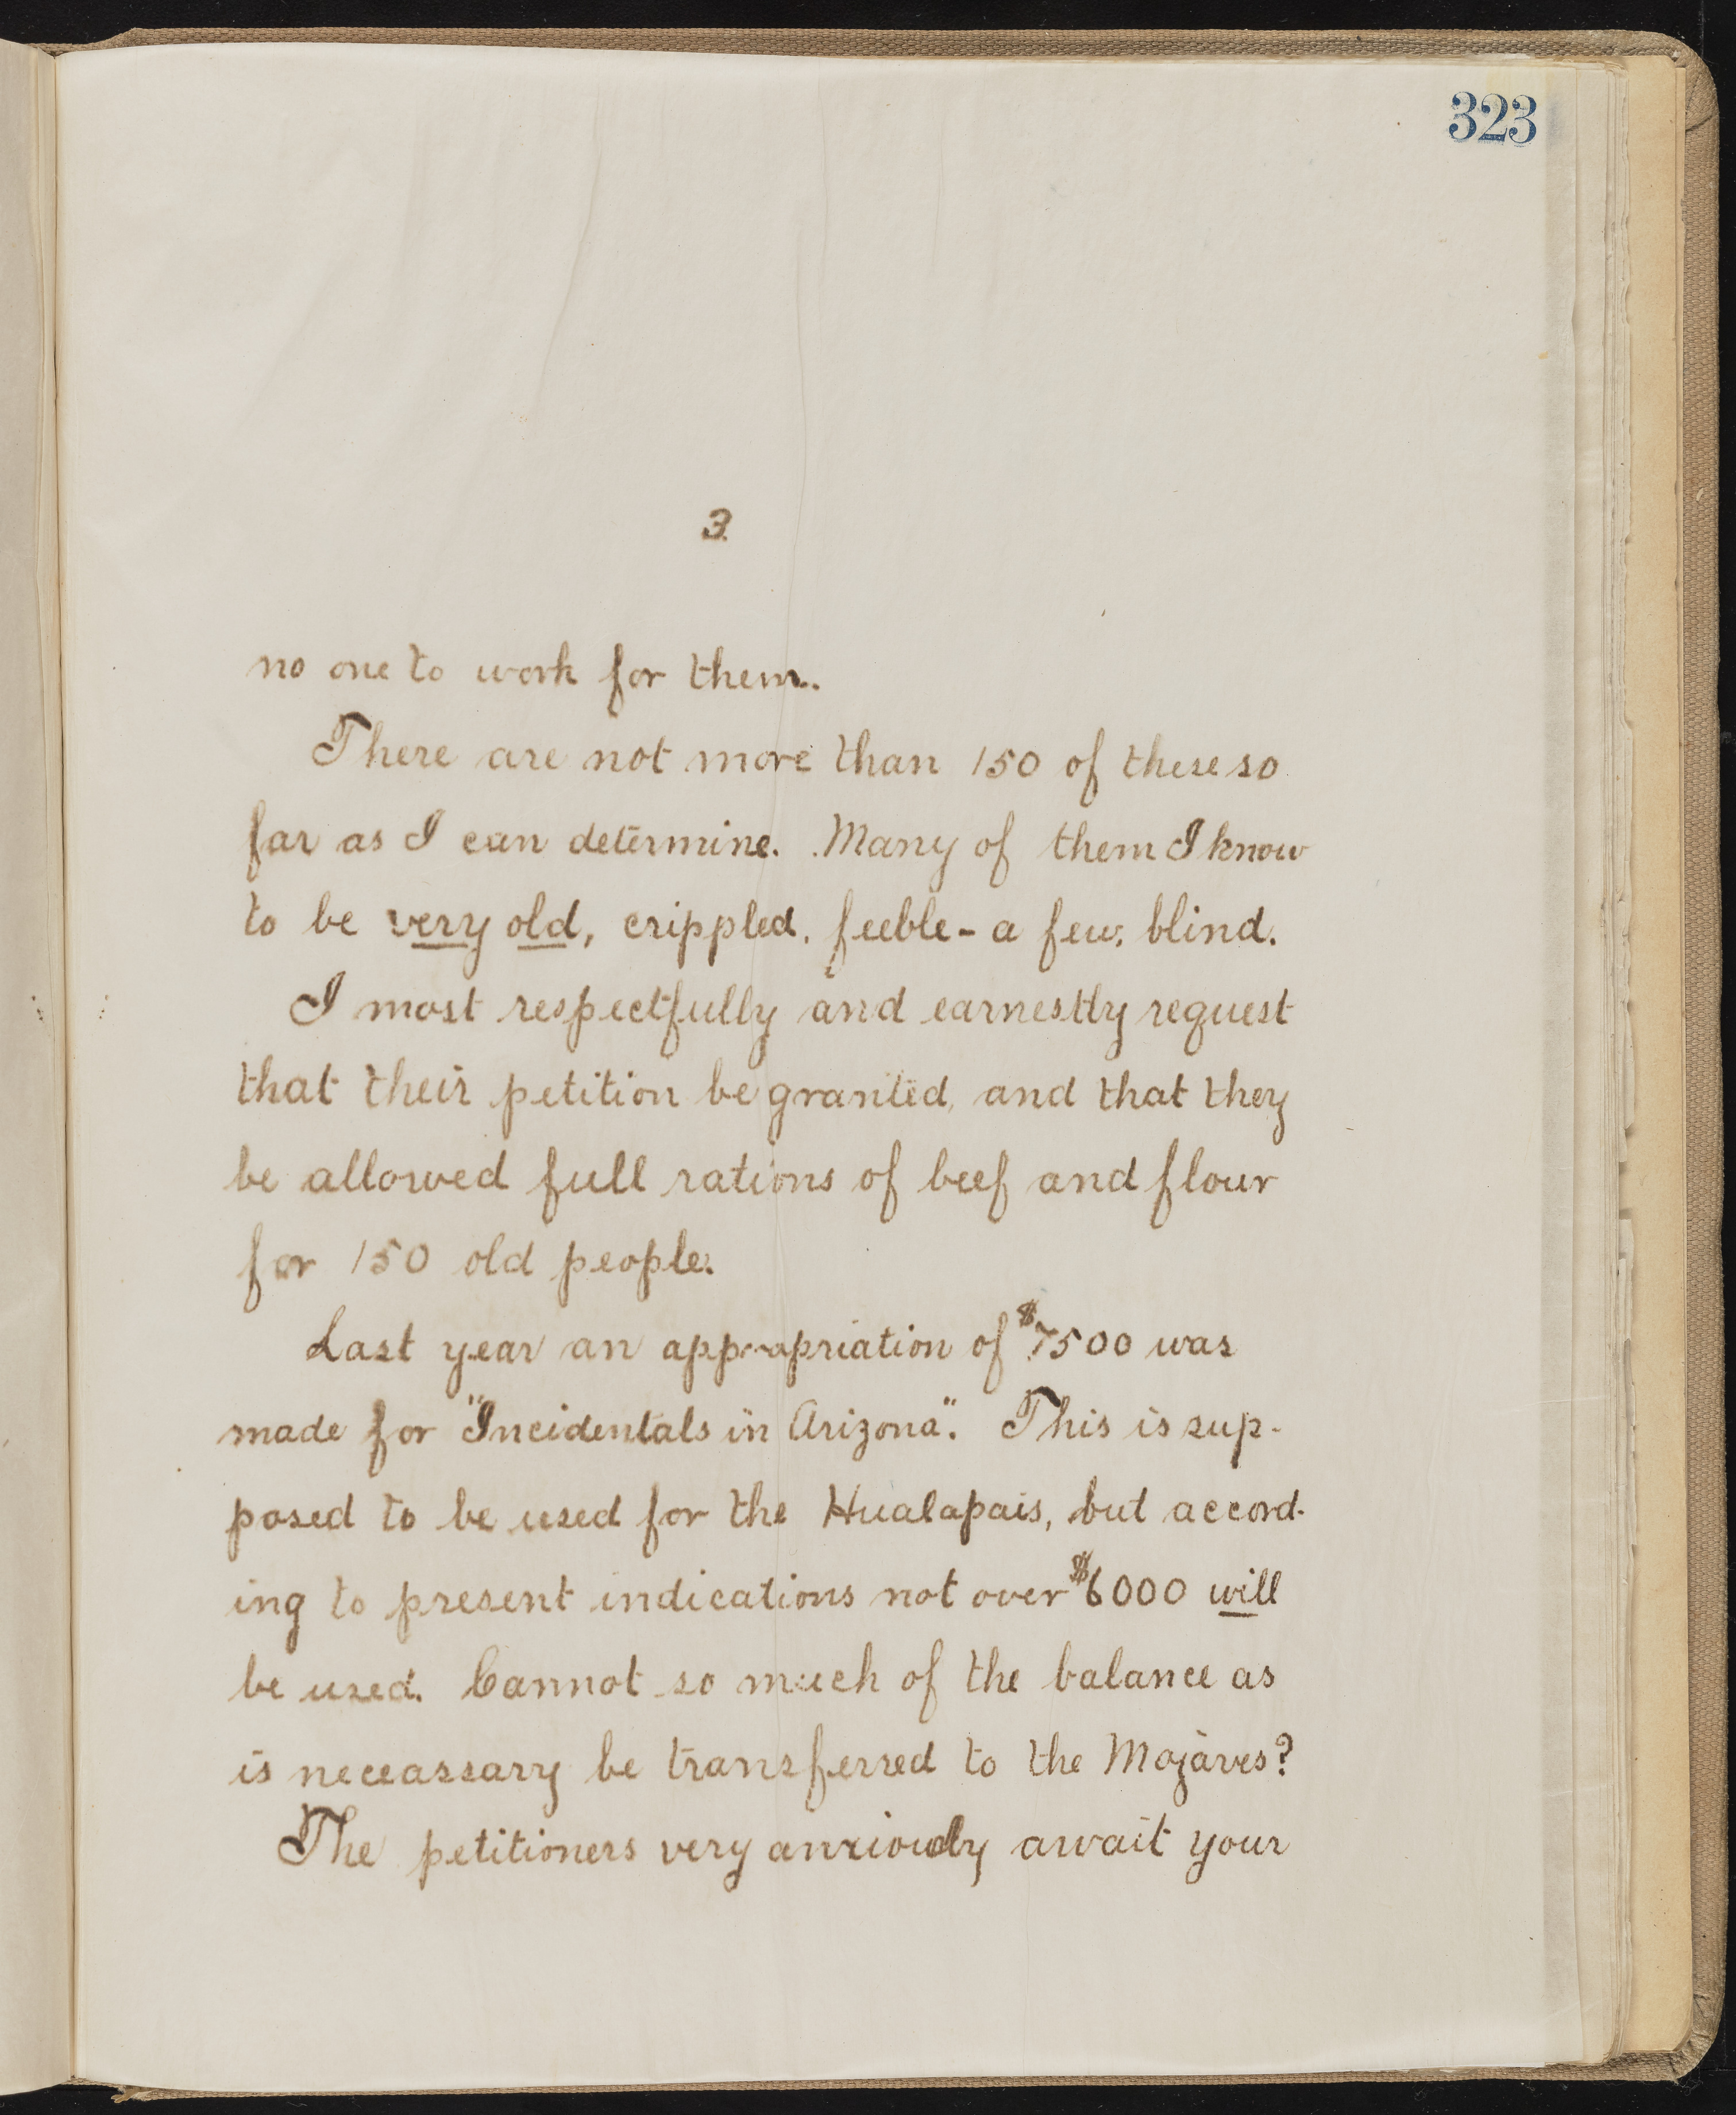 323
3.
no one to work for them.
There are not more than 150 of these so
far as I can determine. Many of them I know
to be very old, crippled, feeble - a few, blind.
I most respectfully and earnestly request
that their petition be granted, and that they
be allowed full rations of beef and flour
for 150 old people.
Last year an appropriation of $7500 was
made for "Incidentals in Arizona". This is sup-
posed to be used for the Hualapais, but accord-
ing to present indications not over $6000 will
be used. Cannot so much of the balance as
is necessary be transferred to the Mojaves?
The petitioners very anxiously await your